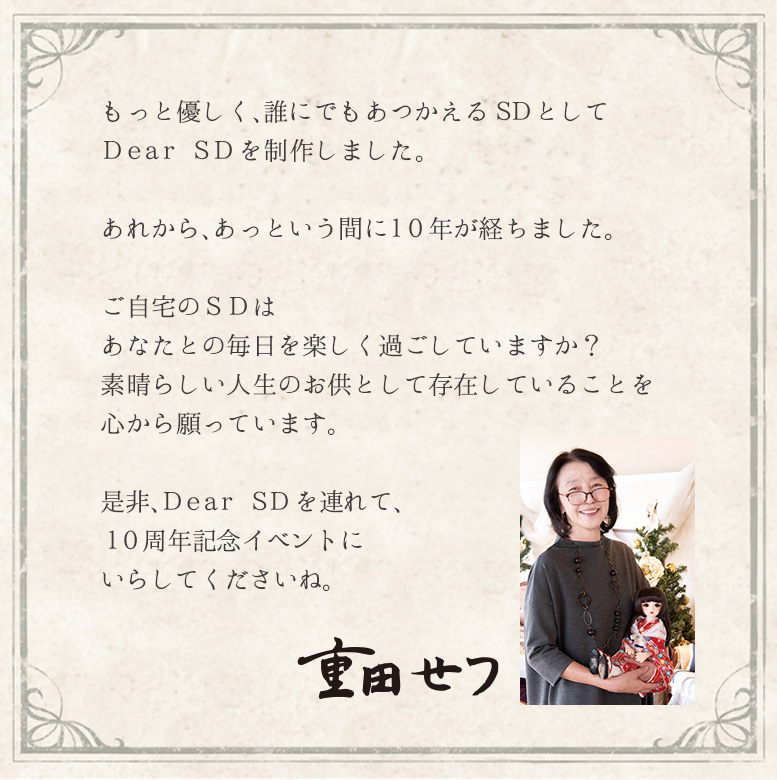 もっと優しく、誰にでもあつかえるSDとして
Ｄｅａｒ　ＳＤを制作しました。
あれから、あっという間に１０年が経ちました。
ご自宅のＳＤは
あなたとの毎日を楽しく過ごしていますか？
素晴らしい人生のお供として存在していることを
心から願っています。
是非、Ｄｅａｒ　ＳＤを連れて、
１０周年記念イベントに
いらしてくださいね。
重田せつ